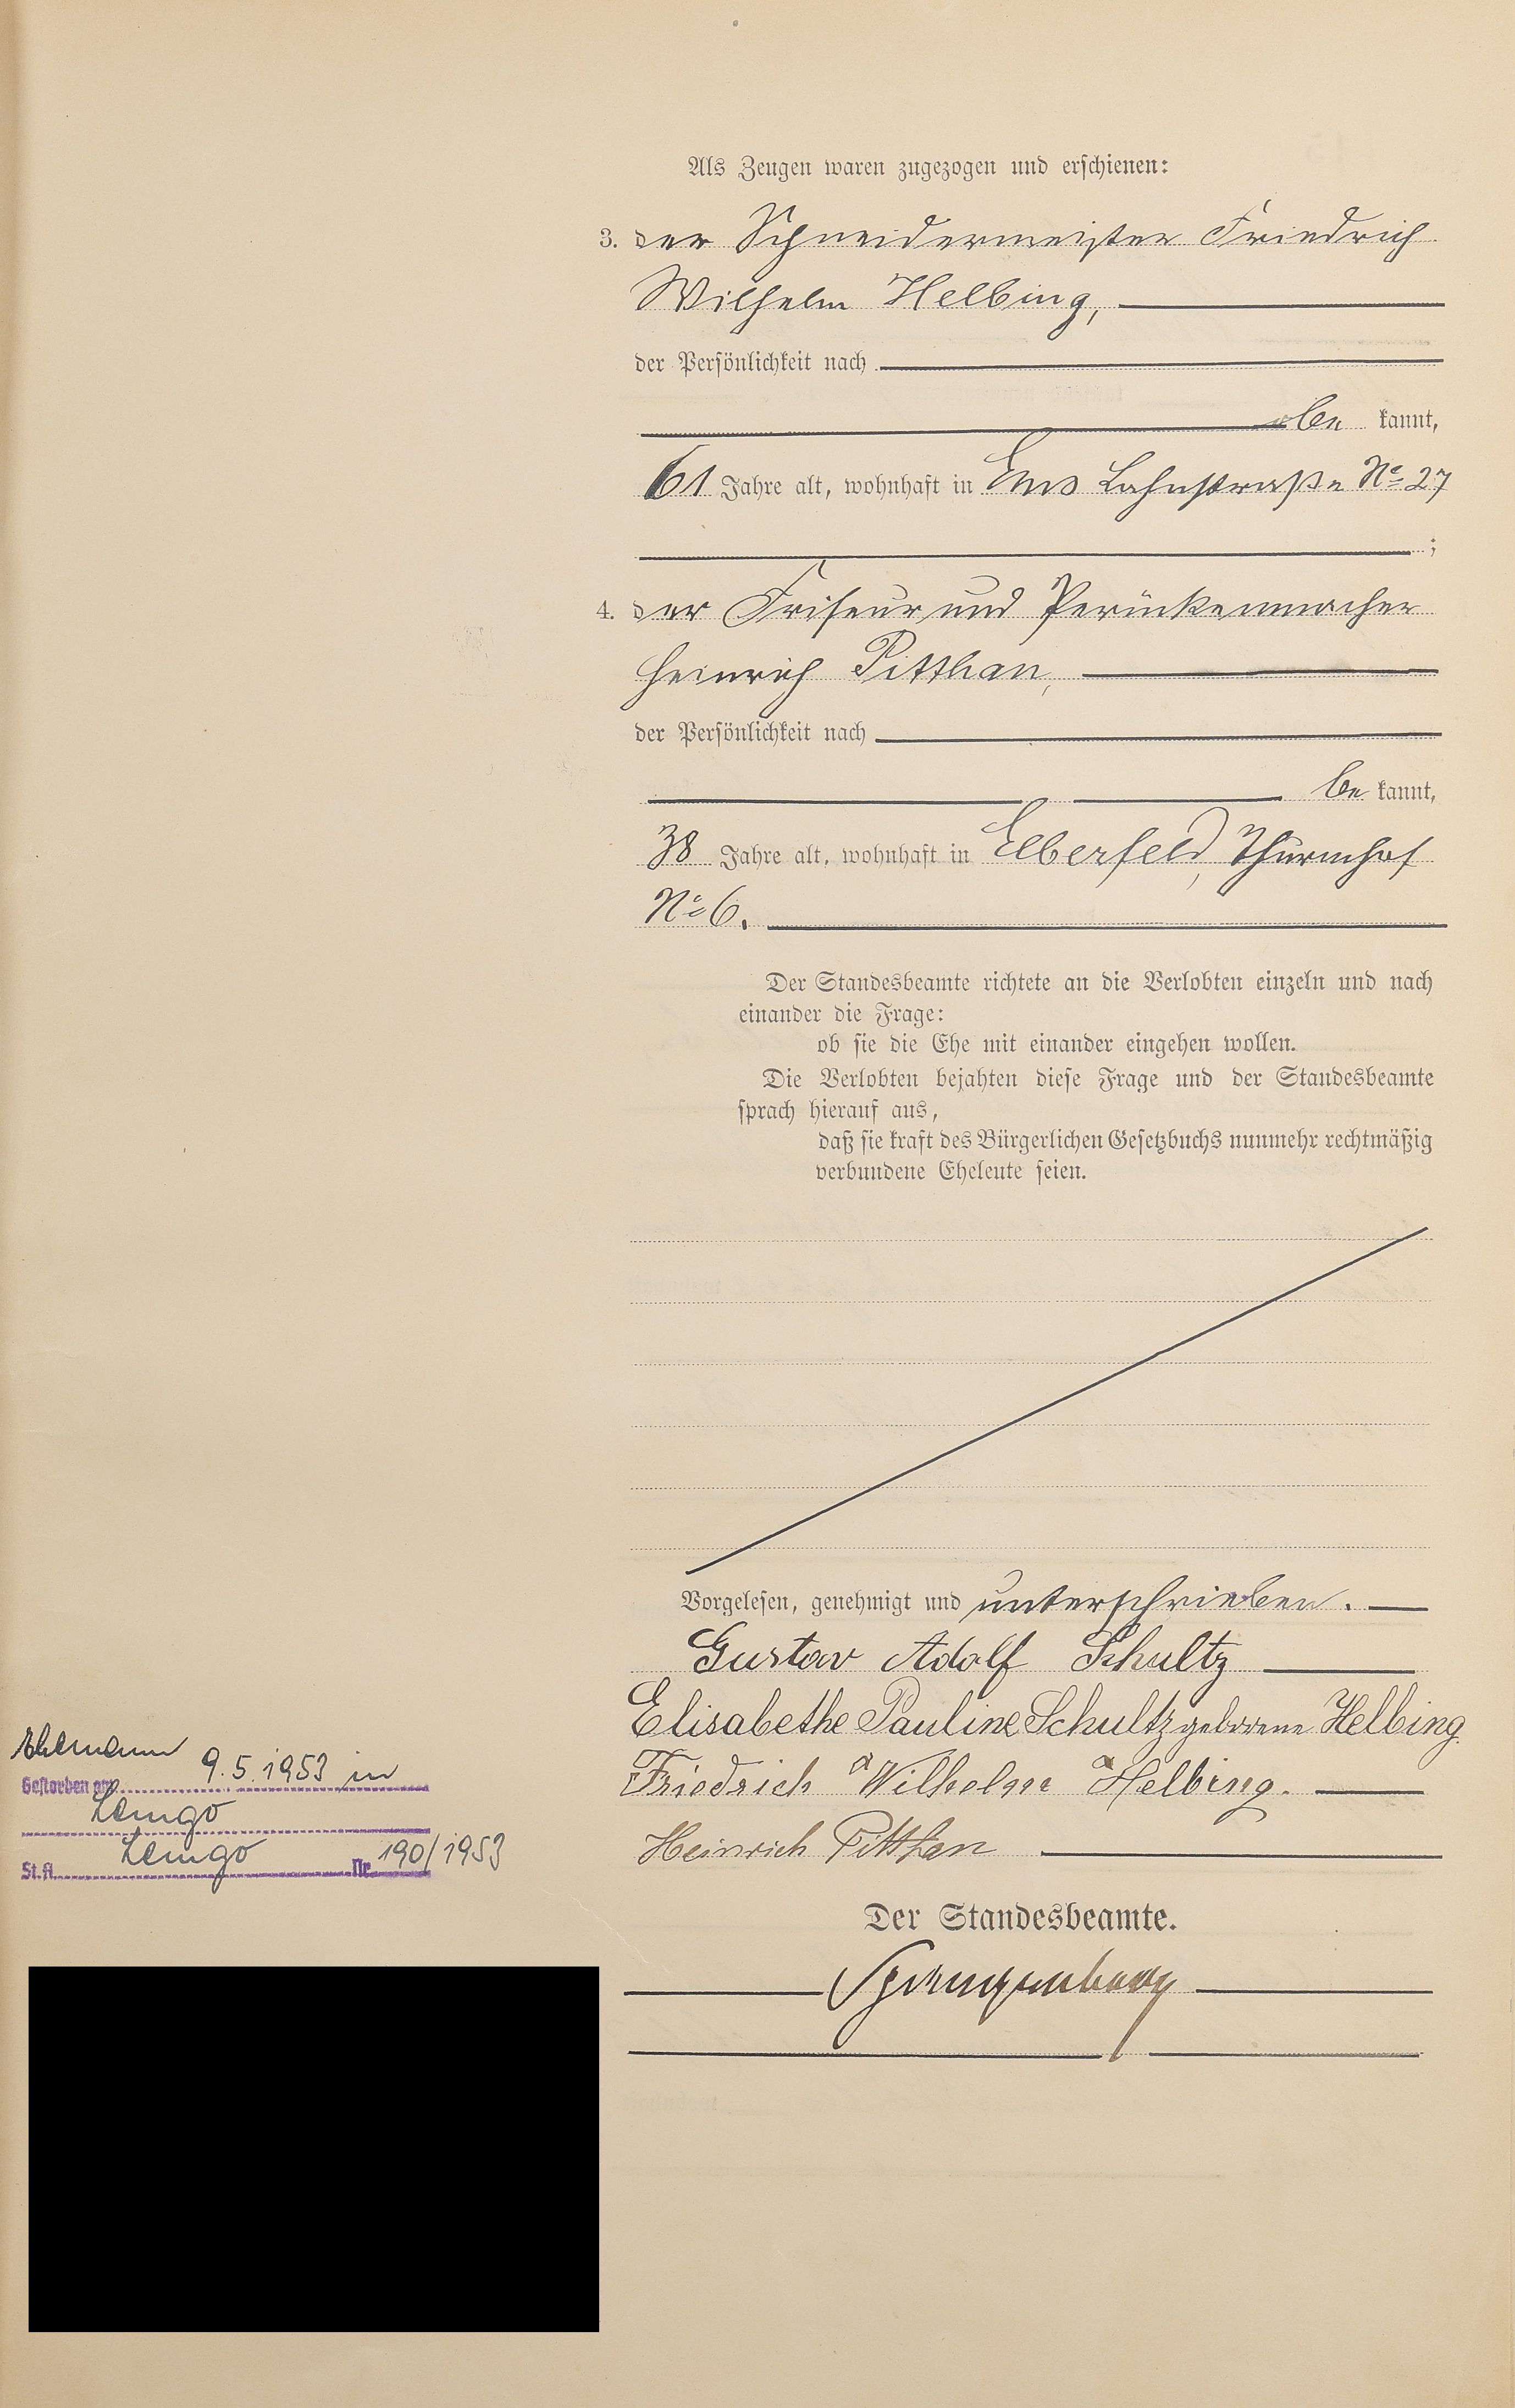 Als Zeugen waren zugezogen und erschienen:
3. der Schneidermeister Friedrich
Wilhelm Helbing,
der Persönlichkeit nach
be kannt,
61 Jahre alt, wohnhaft in Ems Lahnstraße No 27
;
4. der Friseur und Perückenmacher
Heinrich Pitthan,
der Persönlichkeit nach
be kannt,
38 Jahre alt, wohnhaft in Elberfeld, Thurmhof
No 6.
Der Standesbeamte richtete an die Verlobten einzeln und nach
einander die Frage:
ob sie die Ehe mit einander eingehen wollen.
Die Verlobten bejahten diese Frage und der Standesbeamte
sprach hierauf aus,
daß sie kraft des Bürgerlichen Gesetzbuchs nunmehr rechtmäßig
verbundene Eheleute seien.
Vorgelesen, genehmigt und unterschrieben.
Gustav Adolf Schultz
Elisabethe Pauline Schultz geborene Helbing.
Friedrich Wilhelm Helbing.
Heinrich Pitthan
Der Standesbeamte.
Ehemann
Gestorben am 9.5.1953 in
Lemgo
St.A. Lemgo Nr. 190/1953